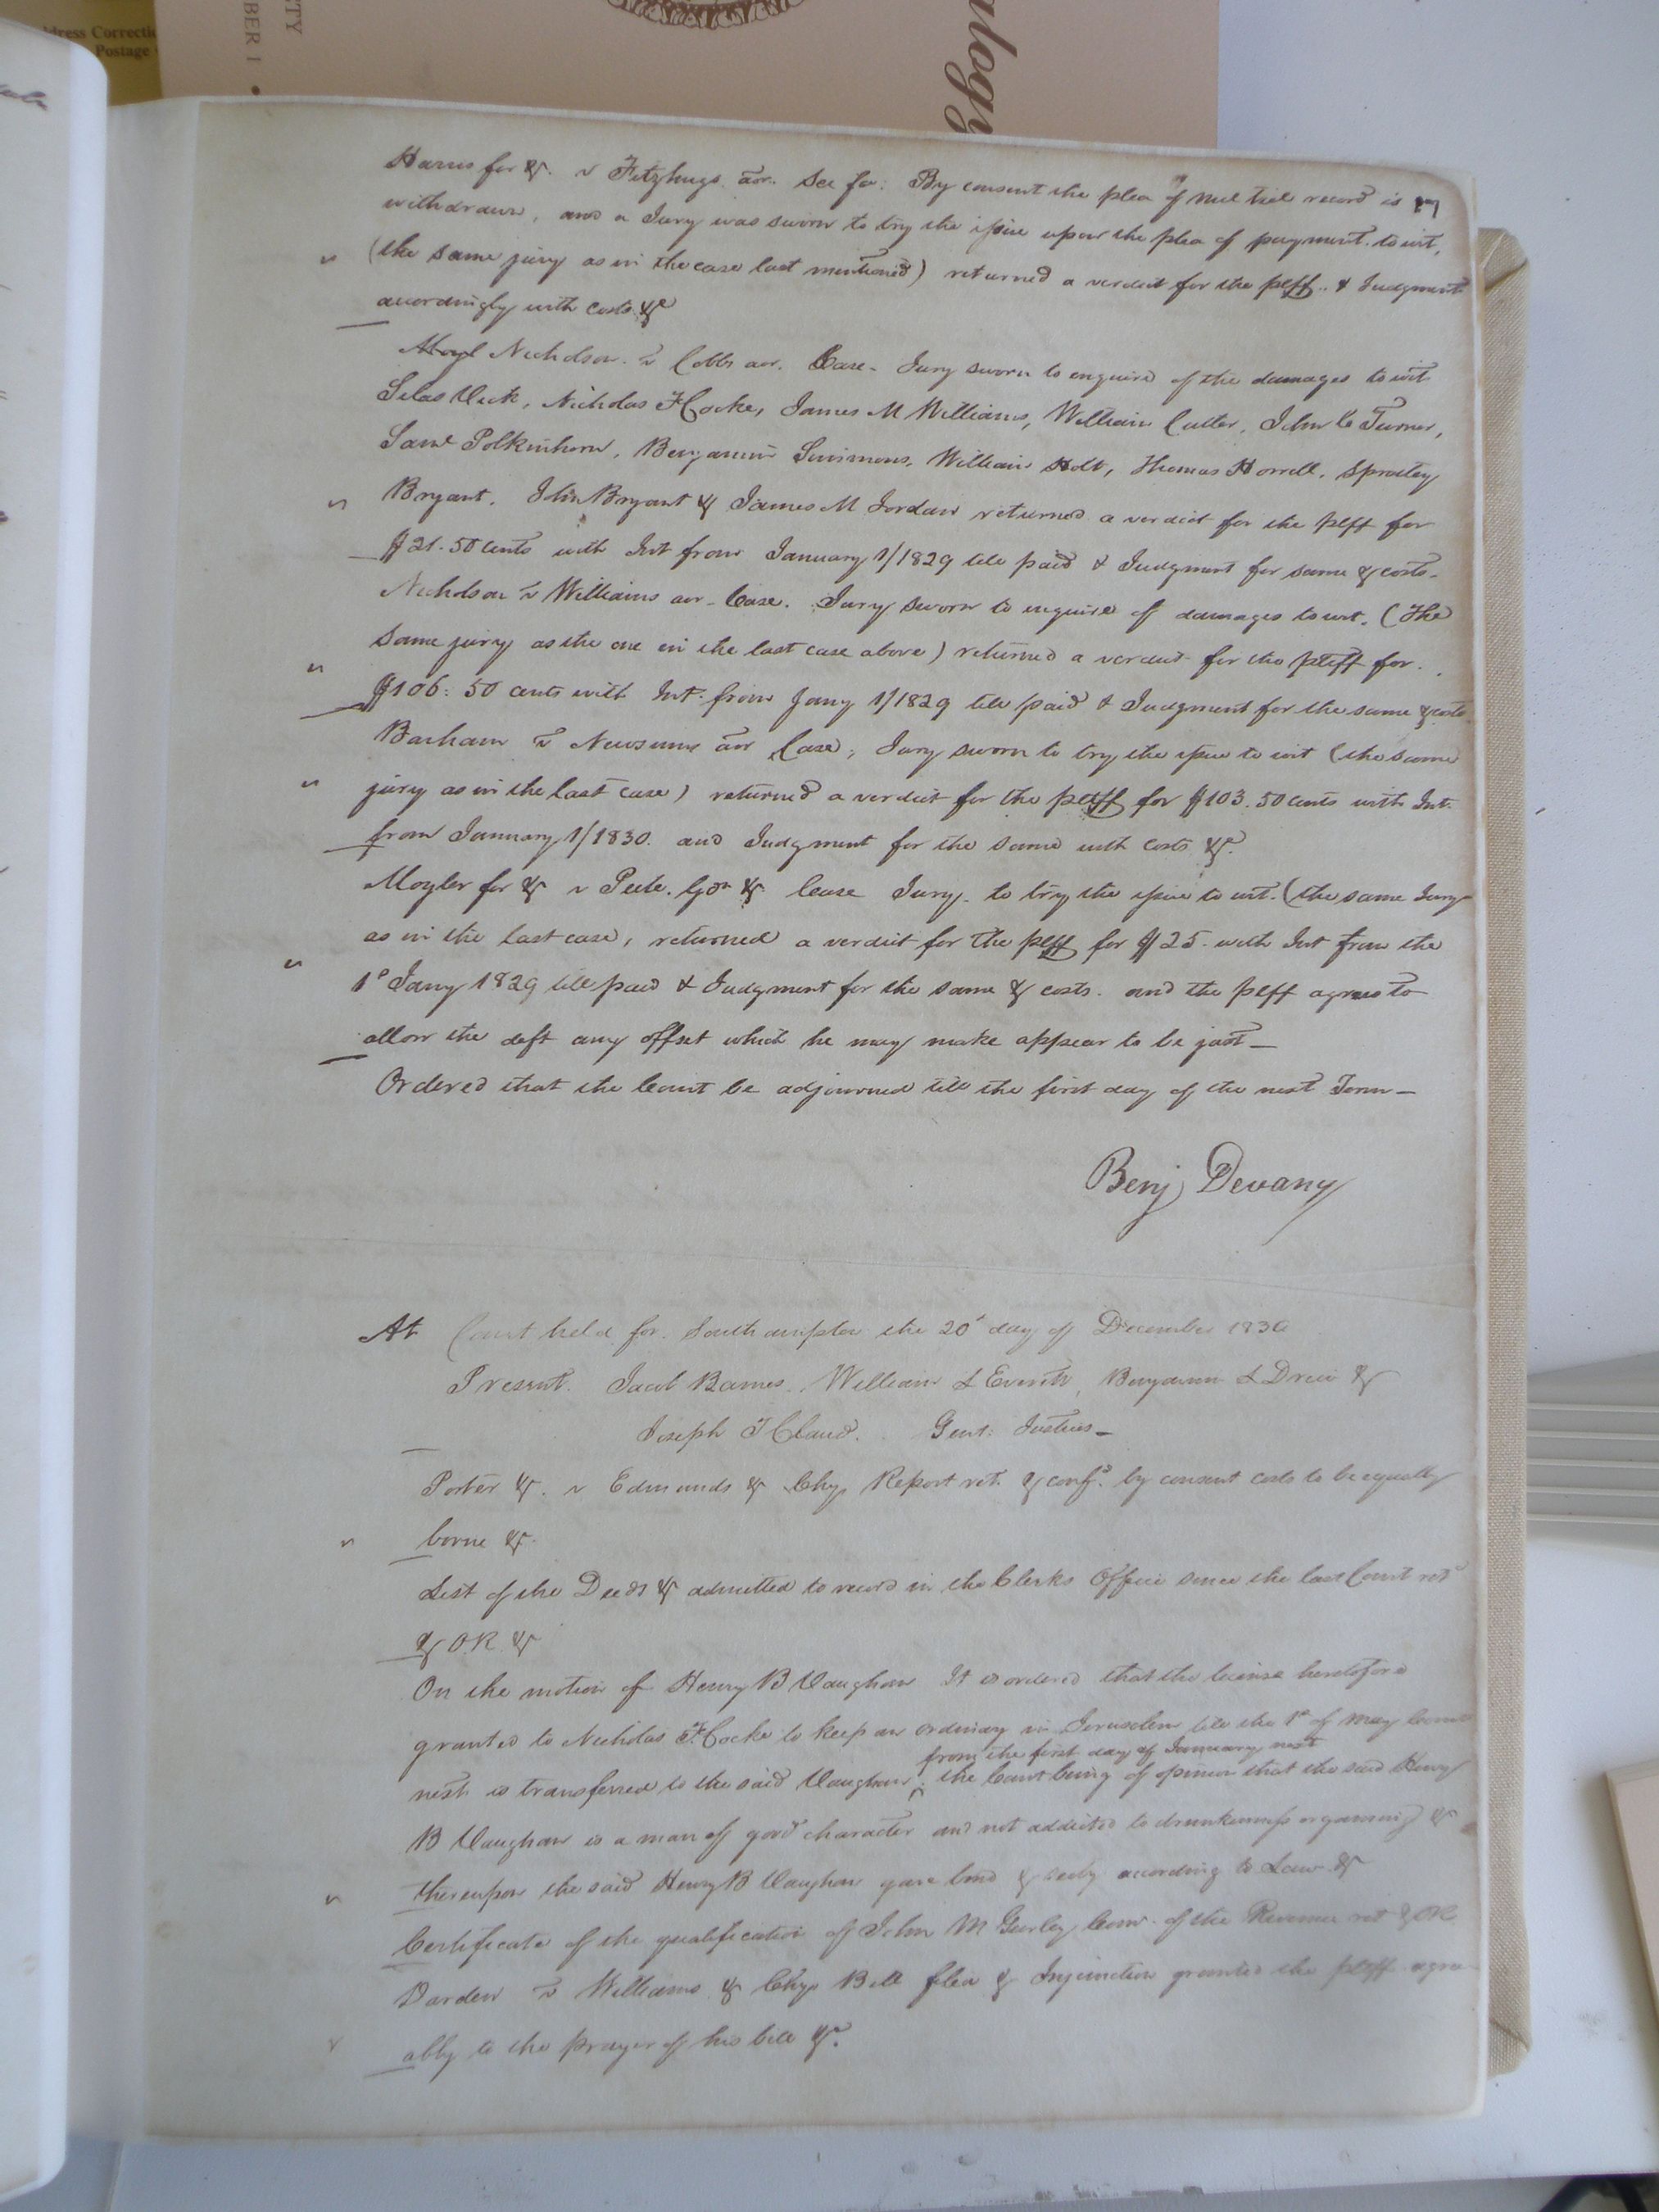 dress Correcti
Postage
TY
BER 1 •
ology
Harris for &c. v Fitzhugs aor. Sci fa: By consent the plea of nul tiel record is
withdrawn, and a Jury was sworn to try the issue upon the plea of payment. to wit,
(the same jury as in the case last mentioned) returned a verdict for the plff. & Judgment
accordingly with costs &c
Nicholson v Cobbs aor. Case - Jury sworn to enquire of the damages to wit
Silas Vick, Nicholas F Cocke, James M Williams, William Cutler, John C Turner,
Saml Polkinhorn, Benjamin Simmons, William Holt, Thomas Horrell, Spratley
Bryant, John Bryant & James M Jordan returned a verdict for the plff for
$21.50 cents with Int from January 1/1829 till paid & Judgment for same & costs -
Nicholson v Williams aor - Case. Jury sworn to enquire of damages to wit. (The
same jury as the one in the last case above) returned a verdict for the pltff for.
$106: 50 cents with Int. from Jany 1/1829 till paid & Judgment for the same & costs
Barham v Newsums aor Case, Jury sworn to try the issue to wit (the same
jury as in the last case) returned a verdict for the pltff for $103.50 cents with Int.
from January 1/1830. and Judgment for the same with costs &c.
Moyler for &c v Peete. Gdn &c Case Jury to try the issue to wit. (the same Jury
as in the last case, returned a verdict for the plff for $25. with Int from the
1st Jany 1829 till paid & Judgment for the same & costs. and the plff agrees to
allow the deft any offset which he may make appear to be just —
Ordered that the Court be adjourned till the first day of the next Term —
Benj Devany
At Court held for Southampton the 20th day of December 1830
Present. Jacob Barnes, William L Everitt, Benjamin L Drew &
Joseph T Claud. Gent: Justices —
Porter &c. v Edmunds &c Chy Report ret. & confd. by consent costs to be equally
borne &c.
List of the Deeds &c admitted to record in the Clerks Office since the last Court retd
& O.R. &c
On the motion of Henry B Vaughan It is ordered that the license heretofore
granted to Nicholas F. Cocke to keep an ordinary in Jerusalem till the 1st of May
from the first day of January next
next is transferred to the said Vaughan ^ the Court being of opinion that the said Henry
B Vaughan is a man of good character and not addicted to drunkenness or gaming &c
thereupon the said Henry B Vaughan gave bond & secty according to Law &c
Certificate of the qualification of John M Gurley Comr. of the Revenue ret & OR
Darden v Williams &c Chy Bill filed & Injunction granted the plff agree
ably to the prayer of his bill &c.